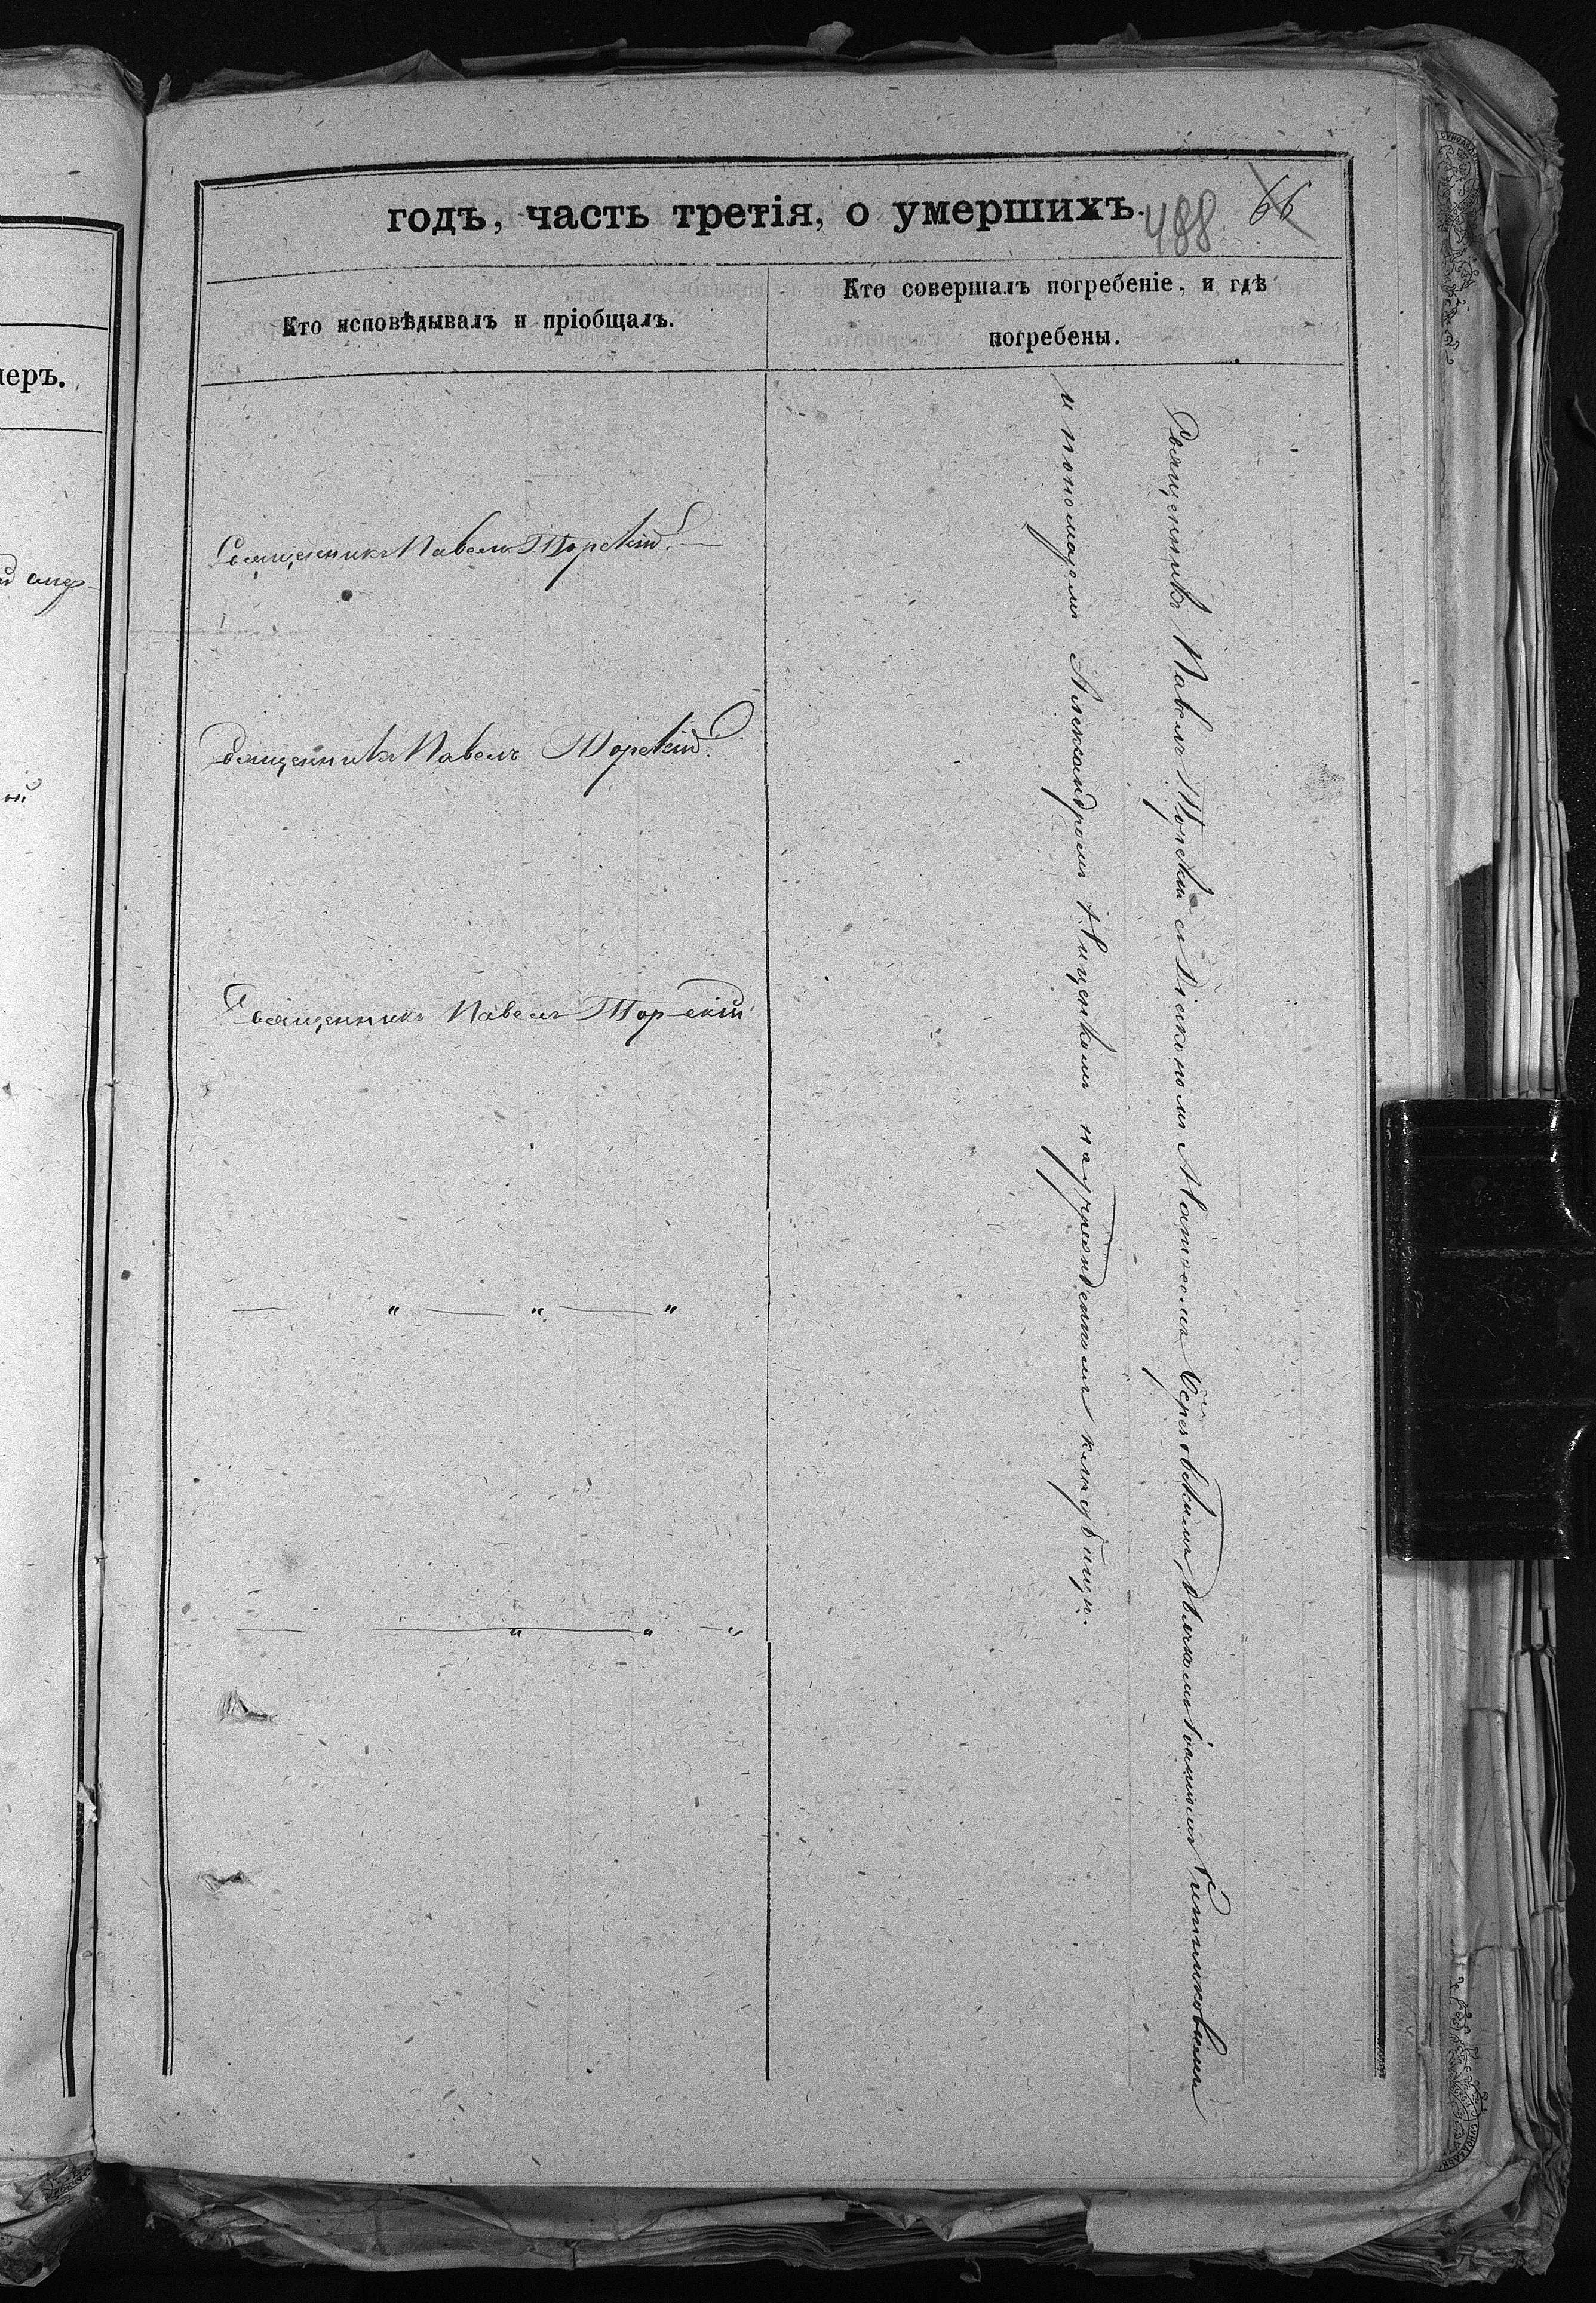 годъ, часть третія, о умершихъ.
488
66
Кто исповѣдывалъ и пріобщалъ.
Кто совершалъ погребеніе, и гдѣ
погребены.
перъ.
Священникъ Павелъ Торскій.
Священникъ Павелъ Торскій.
Священникъ Павелъ Торскій
— " — " — "
— " — " — "
Священникъ Павелъ Торскій съ Діакономъ Дьячкомъ Іоанномъ
и пономаремъ Александромъ Ивиценкомъ на учрежденномъ кладбищѣ.